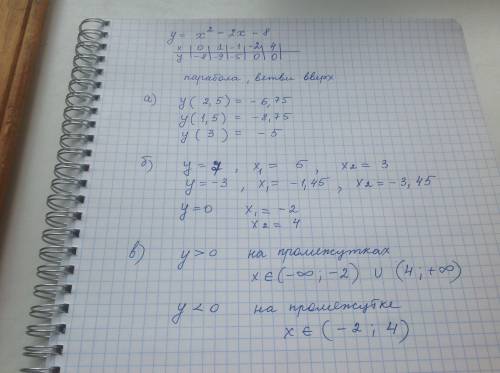 y = x² - 2x - 8
x | 0 | 1 | -1 | -2 | 4 |
y | -8 | -9 | -5 | 0 | 0 |
парабола, ветви вверх
а) y(2,5) = -6,75
y(1,5) = -8,75
y(3) = -5
б) y = 7, x₁ = 5, x₂ = 3
y = -3, x₁ = -1,45, x₂ = -3,45
y = 0 x₁ = -2
x₂ = 4
в) y > 0 на промежутках
x ∈ (-∞; -2) ∪ (4; +∞)
y < 0 на промежутке
x ∈ (-2; 4)